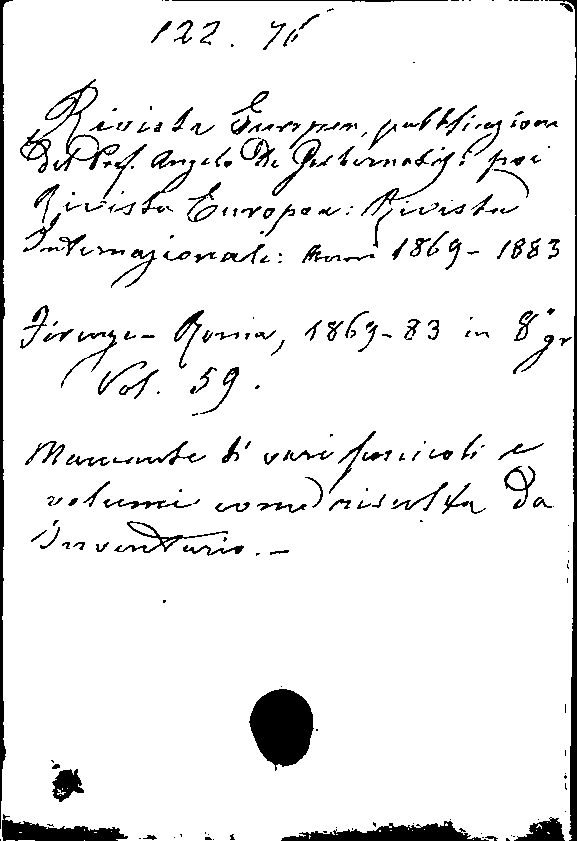 122. 76
Rivista Europea, pubblicazione
del Prof. Angelo De Gubernatis: poi
Rivista Europea: Rivista
Internazionale: Anni 1869-1883
Firenze-Roma, 1869-83 in 8° gr
Vol. 59.
Mancante di vari fascicoli e
volumi come risulta da
Inventario.-